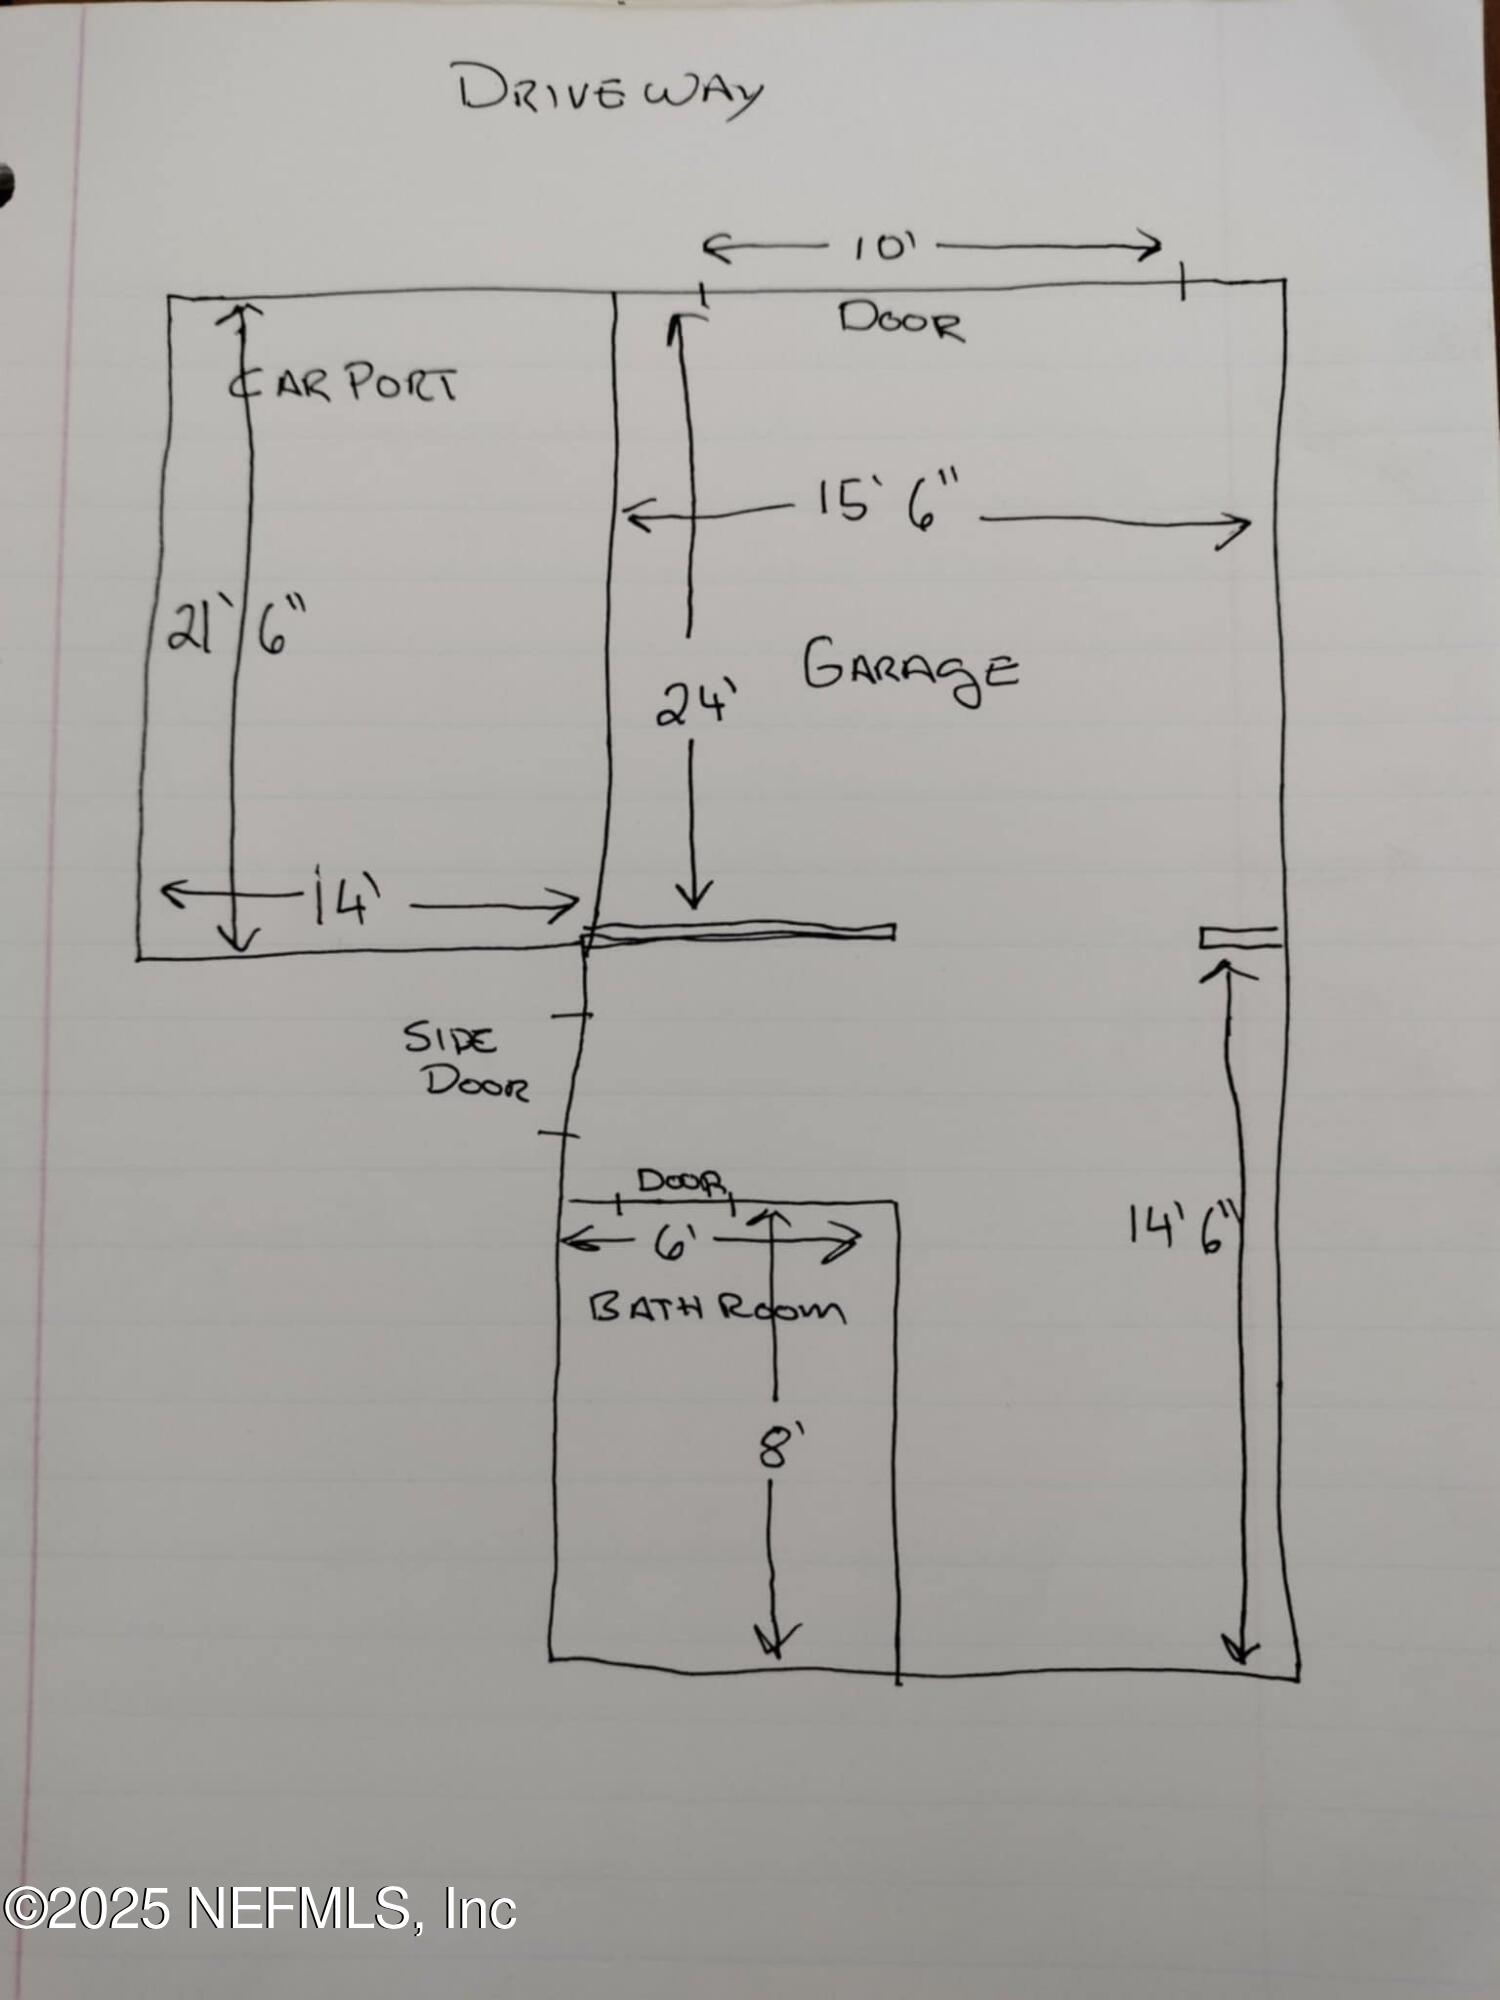 DRIVEWAY
10'
DOOR
CARPORT
15' 6"
21' 6"
GARAGE
24'
14'
SIDE
DOOR
DOOR
14' 6"
6'
BATHROOM
8'
©2025 NEFMLS, Inc